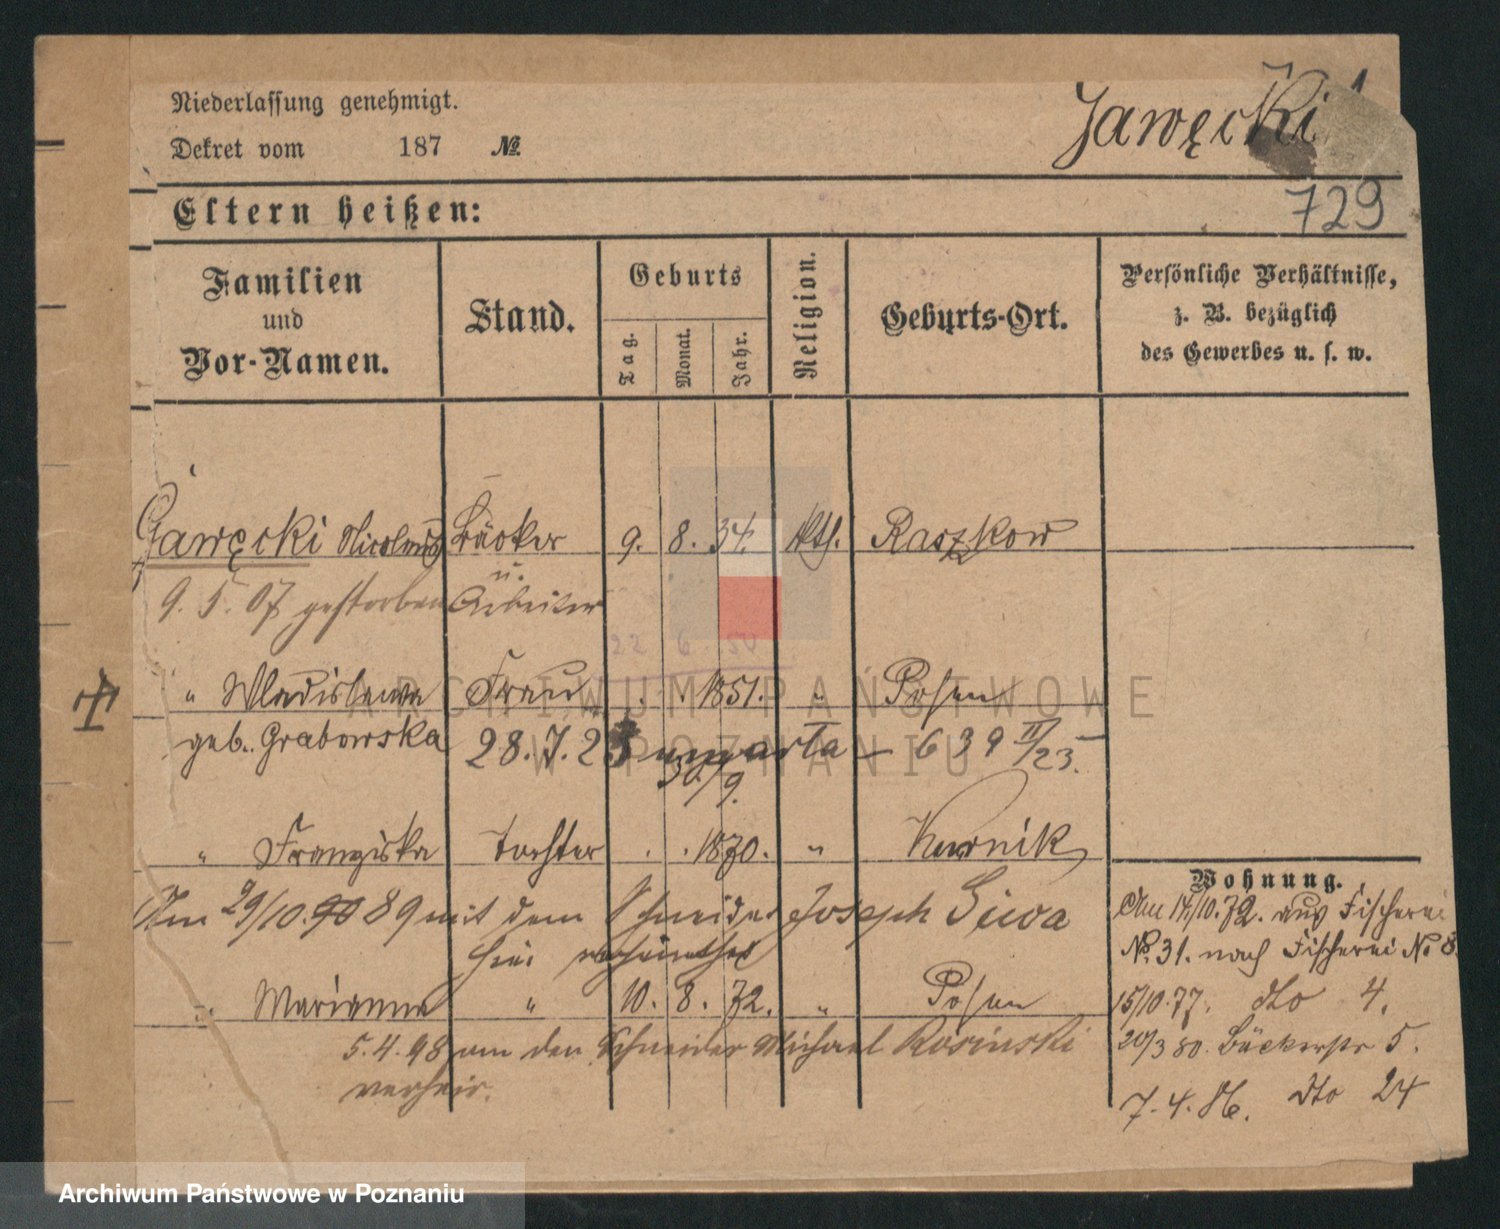 Niederlassung genehmigt.
Dekret vom 187 №
Jawęcki
729
Eltern heißen:
Familien
und
Vor-Namen.
Stand.
Geburts
Tag.
Monat.
Jahr.
Religion.
Geburts-Ort.
Persönliche Verhältnisse,
z. B. bezüglich
des Gewerbes u. s. w.
Gawęcki Nicolaus Bäcker 9. 8. 34. kth. Raszkow
u.
9. 5. 07 gestorben Arbeiter
22 6. 50
" Wladislawa Frau . . 1851. " Posen
geb. Grabowska 28. 7. 25 umarła – 639 II/25.
30/9.
" Franziska Tochter . . 1870. " Kurnik
Am 29/10. 89 mit dem Schneider Joseph Siwa
hier verheirathet
" Marianna " 10. 8. 72. " Posen
5. 4. 98 an den Schneider Michael Rosinski
verheir.
Wohnung.
Am 14/10. 72. aus Fischerei
No. 31. nach Fischerei No 8.
15/10. 77. dto 4.
20/3 80. Bäckerstr 5.
7. 4. 86. dto 24
ARCHIWUM PAŃSTWOWE
W POZNANIU
Archiwum Państwowe w Poznaniu